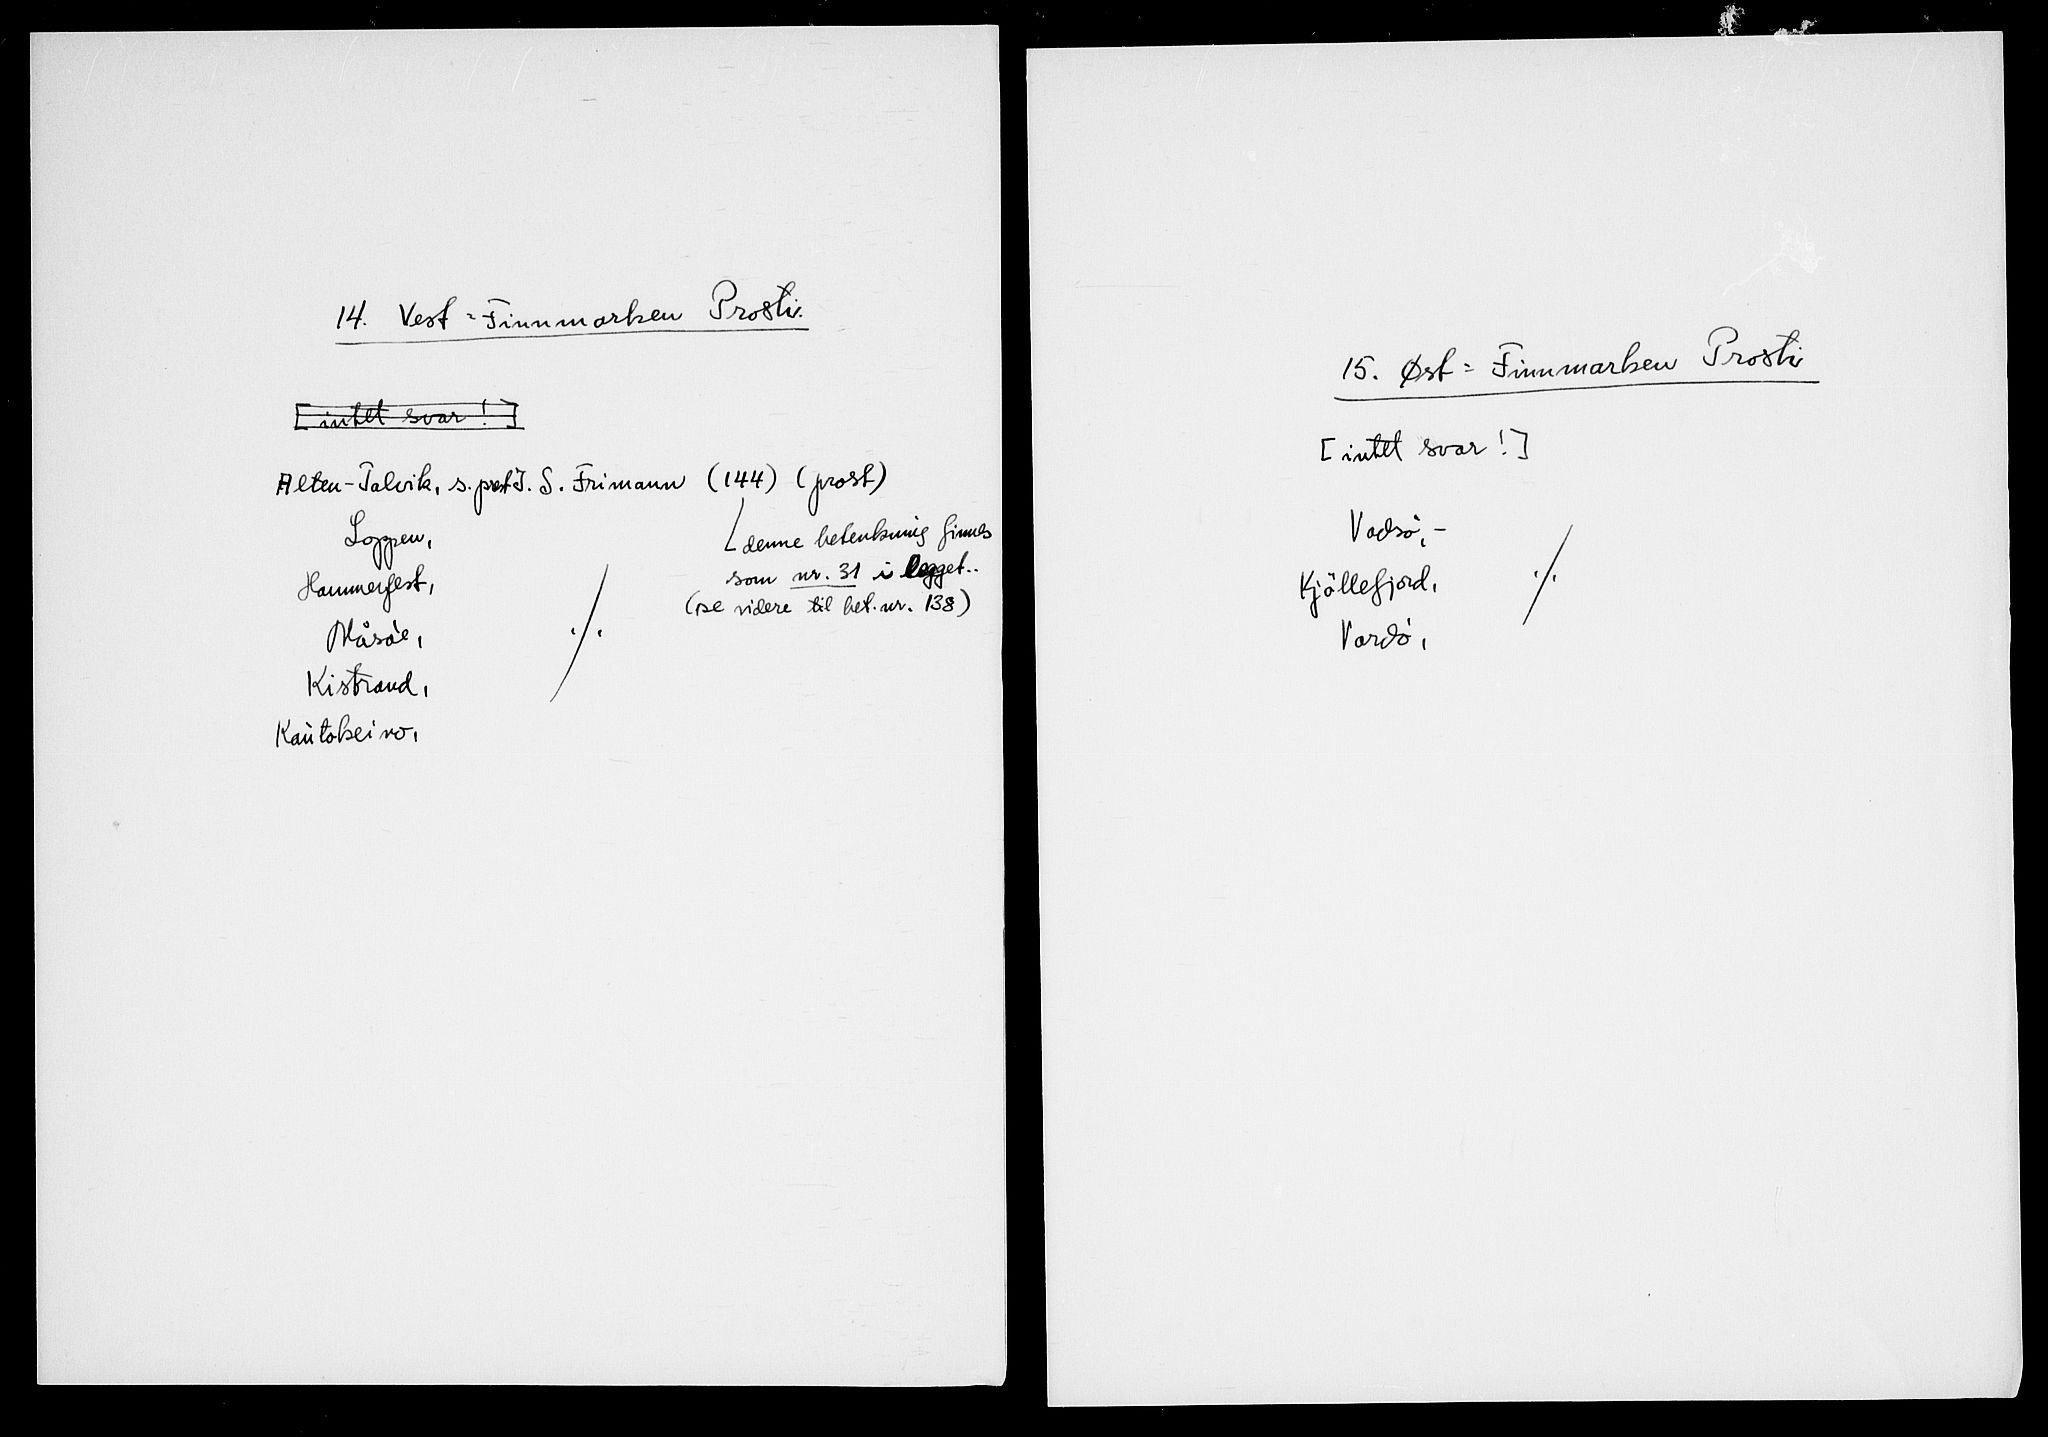 14. Vest=Finnmarken Prosti.
[intet svar!]
Alten-Talvik, s. prest J. S. Frimann (144) (prost)
denne betenkning finnes
som nr. 31 i legget..
(se videre til bet. nr. 138)
Loppen,
Hammerfest,
Måsöe,
Kistrand,
Kautokeino,
./.
15. Øst=Finnmarken Prosti
[intet svar!]
Vadsö,-
Kjöllefjord,
Vardö,
./.